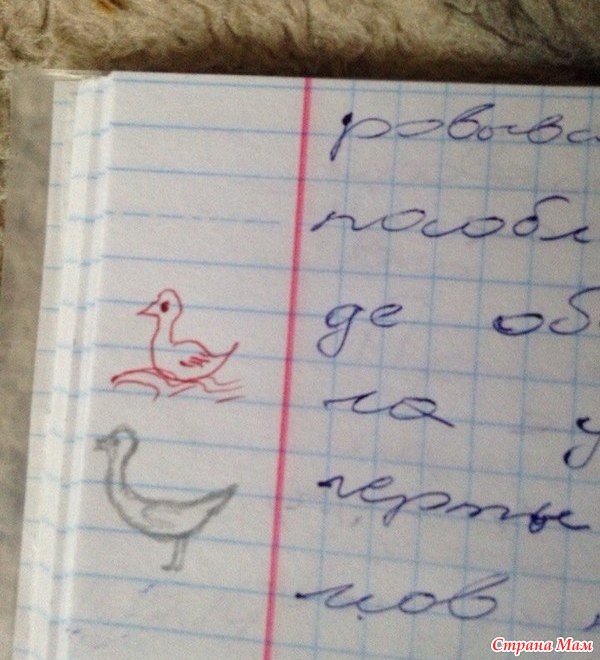 ровыва
пособл
де об
ла у
черты
мов
Страна Мам